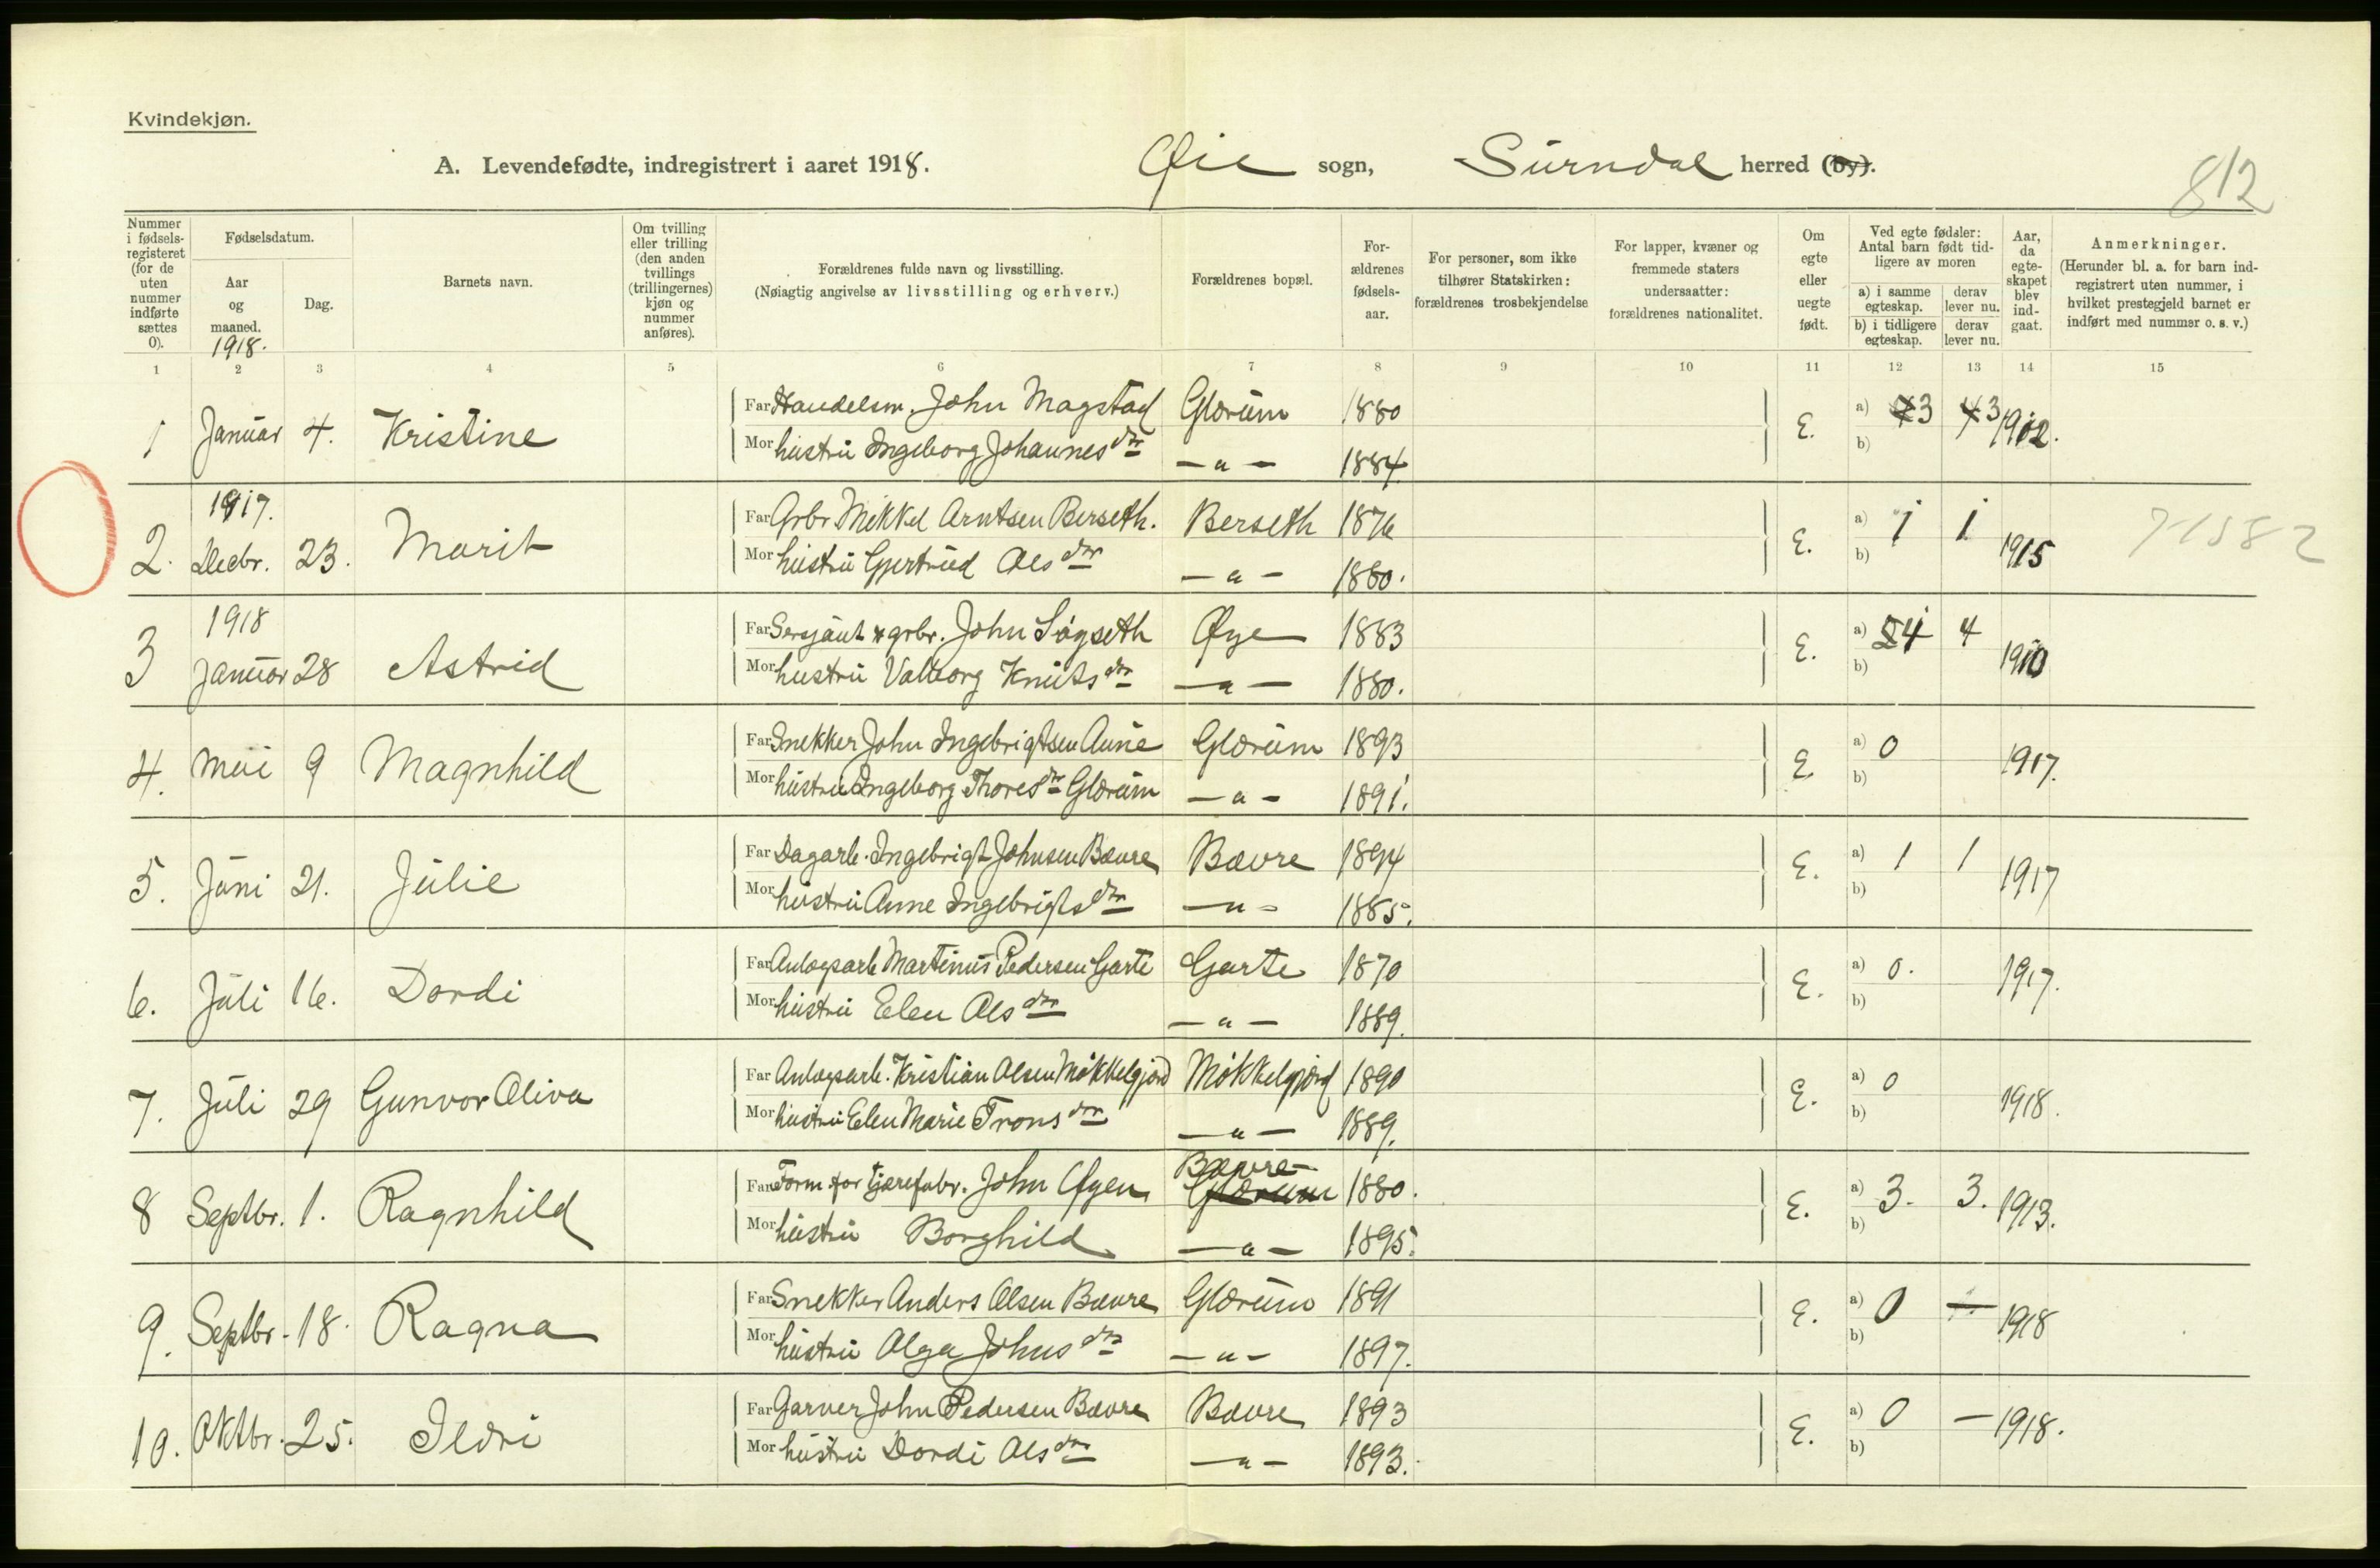 Kvindekjøn.
A. Levendefødte, indregistrert i aaret 1918.
Øie sogn, Surndal herred (by).
812
Nummer i fødselsregisteret (for de uten nummer indførte sættes 0).
Fødselsdatum.
Aar og maaned.
1918.
Dag.
Barnets navn.
Om tvilling eller trilling (den anden tvillings (trillingernes) kjøn og nummer anføres).
Forældrenes fulde navn og livsstilling.
(Nøiagtig angivelse av livsstilling og erhverv.)
Forældrenes bopæl.
Forældrenes fødselsaar.
For personer, som ikke tilhører Statskirken: forældrenes trosbekjendelse
For lapper, kvæner og fremmede staters undersaatter: forældrenes nationalitet.
Om egte eller uegte født.
Ved egte fødsler: Antal barn født tidligere av moren
a) i samme egteskap. derav lever nu.
b) i tidligere egteskap. derav lever nu.
Aar, da egteskapet blev indgaat.
Anmerkninger.
(Herunder bl. a. for barn indregistrert uten nummer, i hvilket prestegjeld barnet er indført med nummer o. s. v.)
1 2 3 4 5 6 7 8 9 10 11 12 13 14 15
1 Januar 4. Kristine Far Handelsm. John Magstad Glærum 1880 E. a) 3 3 1902.
Mor hustru Ingeborg Johannesdtr — " — 1884. b)
1917.
2. Decbr. 23. Marit Far Grbr. Mikkel Arntsen Berseth. Berseth 1876 E. a) 1 1 1915
Mor hustru Gjertrud Olsdtr — " — 1880. b)
1918
3 Januar 28 Astrid Far Sersjant & grbr. John Søgseth Øye 1883 E. a) 4 4 1910
Mor hustru Valborg Knutsdtr — " — 1880. b)
4. Mai 9 Magnhild Far Snekker John Ingebrigtsen Aune Glærum 1893 E. a) 0 1917.
Mor hustru Ingeborg Thoresdtr Glærum — " — 1891. b)
5. Juni 21. Julie Far Dagarb. Ingebrigt Johnsen Bævre Bævre 1894 E. a) 1 1 1917
Mor hustru Anne Ingebrigtsdtr — " — 1885. b)
6. Juli 16. Dordi Far Anlægsarb Martinus Pedersen Garte Garte 1870 E. a) 0. 1917.
Mor hustru Elen Olsdtr — " — 1889. b)
7. Juli 29 Gunvor Oliva Far Anlægsarb. Kristian Olsen Møkkelgjærd Møkkelgjærd 1890 E. a) 0 1918.
Mor hustru Elen Marie Tronsdtr — " — 1889. b)
8 Septbr. 1. Ragnhild Far Form. for tjærefabr. John Øyen Bævre Glærum 1880. E. a) 3. 3. 1913.
Mor hustru Borghild — " — 1895. b)
9. Septbr. 18. Ragna Far Snekker Anders Olsen Bævre Glærum 1891 E. a) 0 — 1918
Mor hustru Olga Johnsdtr — " — 1897. b)
10. Oktbr. 25. Ildri Far Garver John Pedersen Bævre Bævre 1893 E. a) 0 — 1918.
Mor hustru Dordi Olsdtr — " — 1893. b)